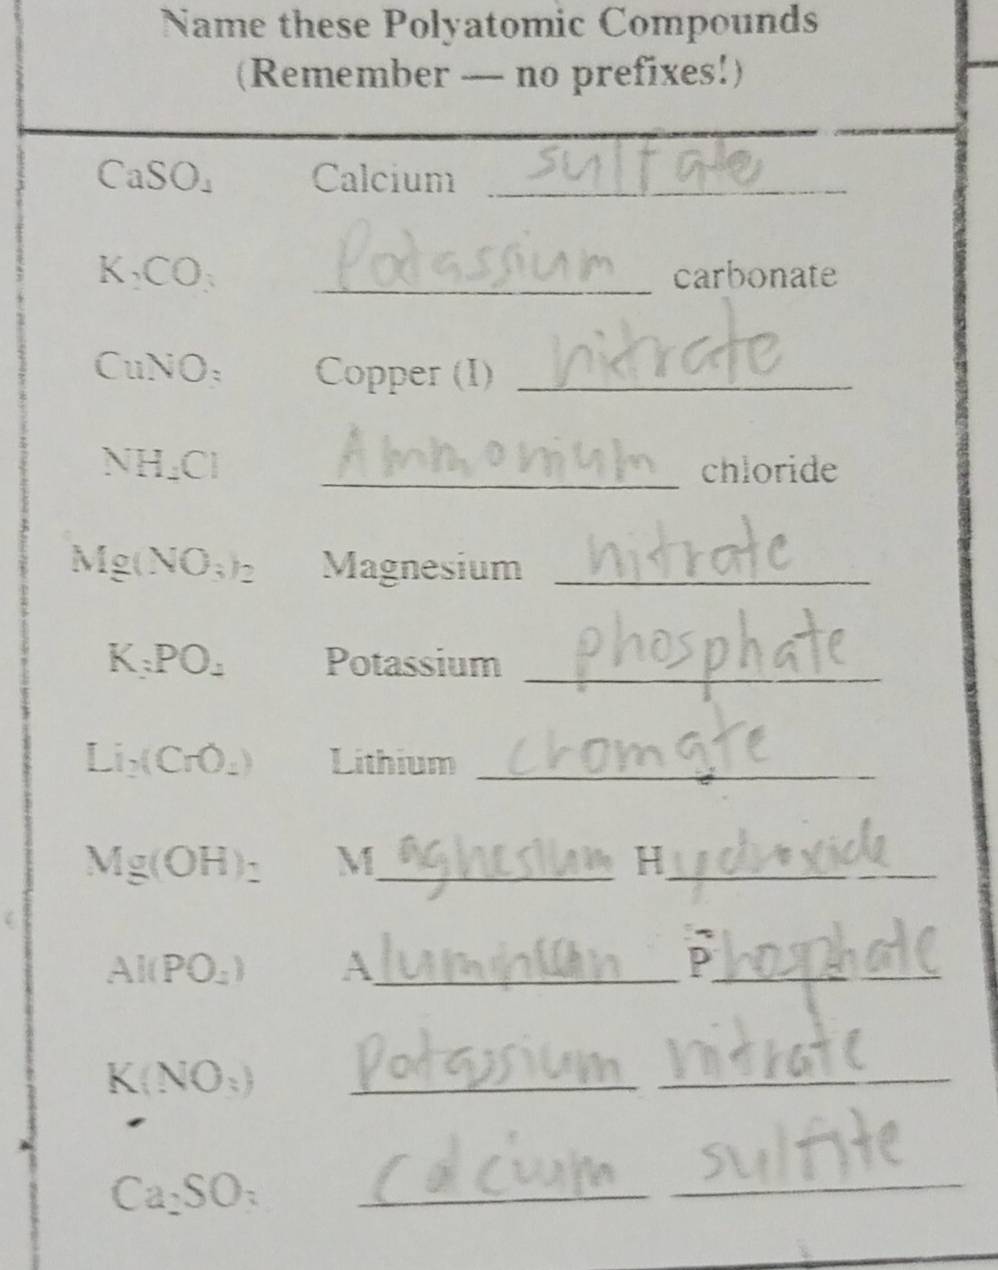 Name these Polyatomic Compounds
(Remember — no prefixes!)
CaSO₄ Calcium sulfate
K₂CO₃ Potassium carbonate
CuNO₃ Copper (I) nitrate
NH₄Cl Ammonium chloride
Mg(NO₃)₂ Magnesium nitrate
K₃PO₄ Potassium phosphate
Li₂(CrO₄) Lithium cromate
Mg(OH)₂ Magnesium Hydroxide
Al(PO₄) Aluminum Phosphate
K(NO₃) Potassium nitrate
Ca₂SO₃ Calcium sulfite